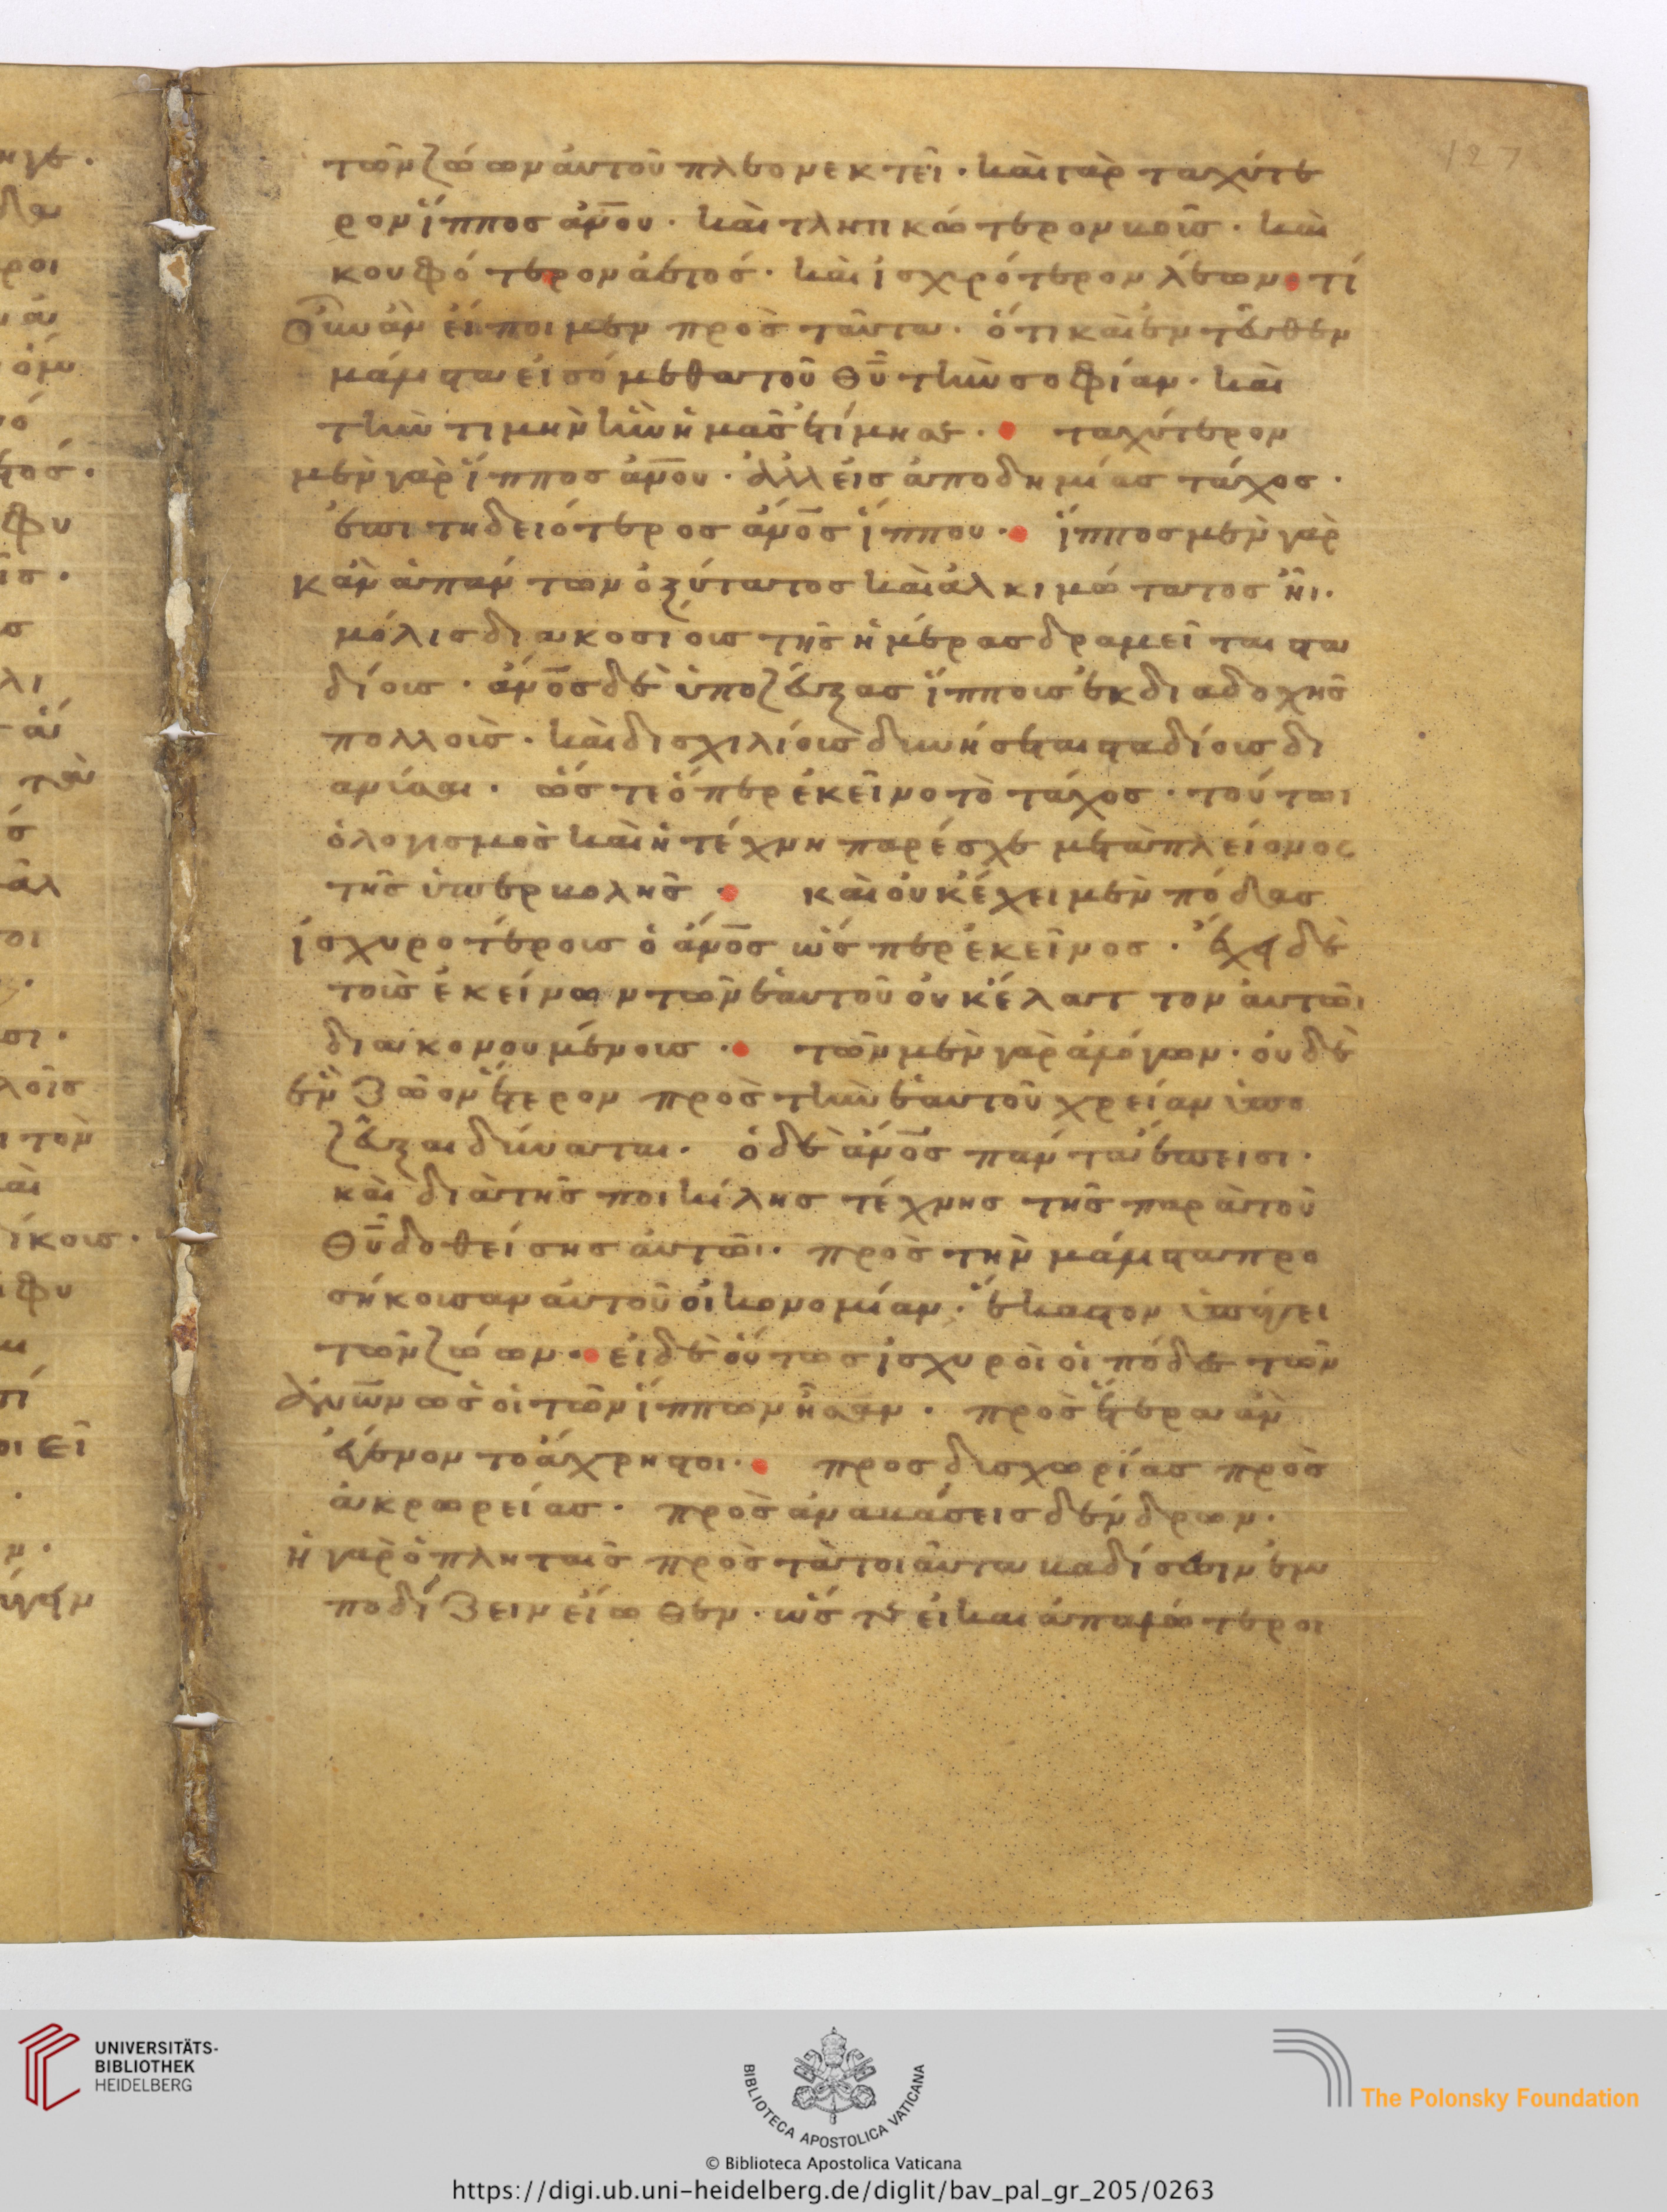 127
τῶν ζώων αὐτοῦ πλεονεκτεῖ· καὶ γὰρ ταχύτε
ρον ἵππος ἀνου· καὶ τλητικώτερον βοῦς· καὶ
κουφότερον ἀετός· καὶ ἰσχυρότερον λέων· τί
οὖν ἂν εἴποιμεν πρὸς ταῦτα· ὅτι καὶ ἐντεῦθεν
μάλιστα εἰσόμεθα τοῦ θυ τὴν σοφίαν· καὶ
τὴν τιμὴν ἣν ἡμᾶς ἐτίμησε· ταχύτερον
μὲν γὰρ ἵππος ἀνου· ἀλλ εἰς ἀποδημίας τάχος·
ἐπιτηδειότερος ἄνος ἵππου· ἵππος μὲν γὰρ
κἂν ἁπάντων ὀξύτατος καὶ ἀλκιμώτατος ἦι·
μόλις διακοσίους τῆς ἡμέρας δραμεῖται στα
δίους· ἄνος δὲ ὑποζεύξας ἵππους ἐκ διαδοχῆς
πολλοὺς· καὶ δισχιλίους δυνήσεται σταδίους δι
ανύσαι· ὥστε ὅπερ ἐκεῖνο τὸ τάχος· τούτωι
ὁ λογισμὸς καὶ ἡ τέχνη παρέσχε μετὰ πλείονος
τῆς ὑπερβολῆς· καὶ οὐκ ἔχει μὲν πόδας
ἰσχυροτέρους ὁ ἄνος ὥσπερ ἐκεῖνος· ἔχει δὲ
τοὺς ἐκείνων τῶν ἑαυτοῦ οὐκ ἔλαττον αὐτῶι
διακονουμένους· τῶν μὲν γὰρ ἀλόγων· οὐδὲ
ἓν ζῶον ἕτερον πρὸς τὴν ἑαυτοῦ χρείαν ὑπο
ζεῦξαι δύναται· ὁ δὲ ἄνος πάντα ἔπεισι·
καὶ διὰ τῆς ποικίλης τέχνης τῆς παρὰ τοῦ
θυ δοθείσης αὐτῶι· πρὸς τὴν μάλιστα προ
σήκουσαν αὐτοῦ οἰκονομίαν· ἕκαστον ὑπάγει
τῶν ζώων· εἰ δὲ οὕτως ἰσχυροὶ οἱ πόδες τῶν
ἀνων ὡς οἱ τῶν ἵππων ἦσαν· πρὸς ἕτερα ἂν
ἐγένοντο ἄχρηστοι· πρὸς δυσχωρίας πρὸς
ἀκρωρείας· πρὸς ἀναβάσεις δένδρων·
ἡ γὰρ ὁπλὴ ταῖς πρὸς τὰ τοιαῦτα βαδίσεσιν ἐμ
ποδίζειν εἴωθεν· ὥστε εἰ καὶ ἁπαλώτεροι
UNIVERSITÄTS-
BIBLIOTHEK
HEIDELBERG
BIBLIOTECA APOSTOLICA VATICANA
The Polonsky Foundation
© Biblioteca Apostolica Vaticana
https://digi.ub.uni-heidelberg.de/diglit/bav_pal_gr_205/0263